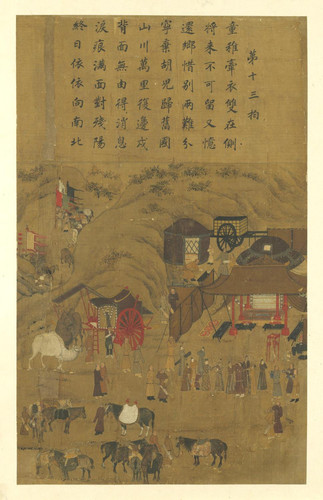 第十三拍
童稚牽衣雙在側
將來不可留又憶
還鄉惜別兩難分
寧棄胡兒歸舊國
山川萬里復邊戍
背面無由得消息
淚痕滿面對殘陽
終日依依向南北